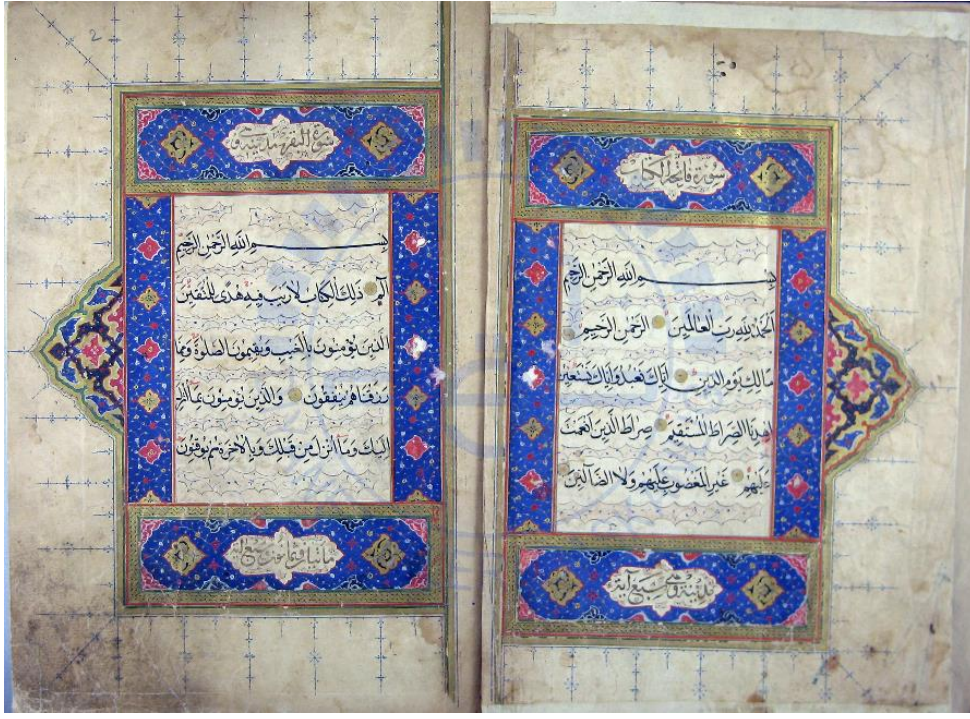 سورة فاتحة الكتاب
بسم الله الرحمن الرحيم
الحمد لله رب العالمين الرحمن الرحيم
مالك يوم الدين إياك نعبد وإياك نستعين
اهدنا الصراط المستقيم صراط الذين أنعمت
عليهم غير المغضوب عليهم ولا الضالين
مدنية وهي سبع آية
2
سورة البقرة مدنية وهي
بسم الله الرحمن الرحيم
الم ذلك الكتاب لا ريب فيه هدى للمتقين
الذين يؤمنون بالغيب ويقيمون الصلوة ومما
رزقناهم ينفقون والذين يؤمنون بما أنزل
إليك وما أنزل من قبلك وبالآخرة هم يوقنون
مائتا وثمانون وسبع آية